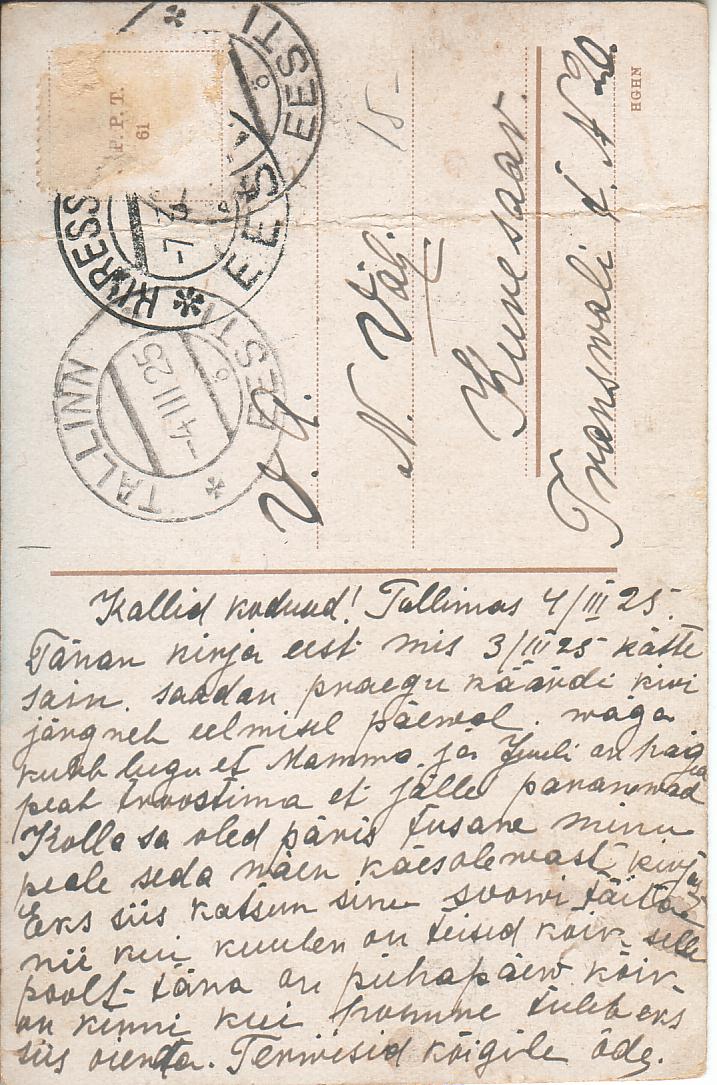 P. P. T.
61
EESTI
KURESS
-7
EESTI
TALLINN
-4 III 25
EESTI
15-
V. A.
N. Välj.
Kuresaar.
Transvali t. N 20.
HGHN
Kallid kodused! Tallinnas 4/III 25.
Tänan kirja eest mis 3/III 25 kätte
sain. saadan praegu käärdi kiri
järgneb eelmisel päewal. wäga
kurb lugu et Mamma ja Juuli on haige
peab troostima et jälle paranewad
Kolla sa oled päris tusane minu
peale seda näen käesolewast kirjas
Eks siis katsun sinu soowi täita
nii kui kuulen on teised kõik selle
poolt täna on pühapäew kõik
on kinni kui homme tuleb eks
siis oienda. Terwisid kõigile õde.